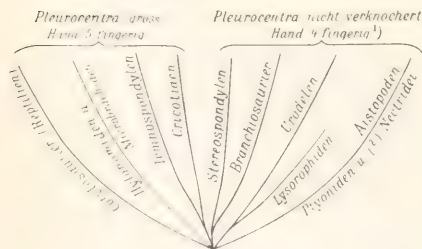 Pleurocentra gross
Hand 5 fingerig
Pleurocentra nicht verknöchert
Hand 4 fingerig¹)
(Reptilien)
Temnospondylen
Cricotiden
Stereospondylen
Branchiosaurier
Urodelen
Lysorophiden
Aistopoden
Ptyoniden u (?) Nectridei